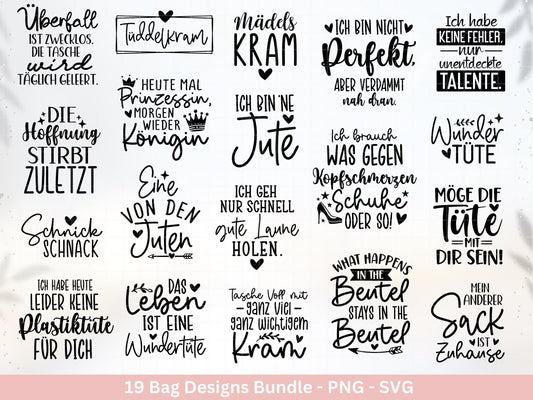 Überfall
IST ZWECKLOS.
DIE TASCHE
wird
TÄGLICH GELEERT.
Tüddelkram
Mädels
KRAM
ICH BIN NICHT
Perfekt,
ABER VERDAMMT
nah dran.
Ich habe
KEINE FEHLER,
nur
unentdeckte
TALENTE.
DIE
Hoffnung
STIRBT
ZULETZT
HEUTE MAL
Prinzessin,
MORGEN
WIEDER
Königin
ICH BIN 'NE
Jute
Ich brauch
WAS GEGEN
Kopfschmerzen
Schuhe
ODER SO!
Wunder
TÜTE
Schnick
SCHNACK
Eine
VON DEN
Juten
ICH GEH
NUR SCHNELL
gute Laune
HOLEN.
MÖGE DIE
Tüte
MIT
DIR SEIN!
ICH HABE HEUTE
LEIDER KEINE
Plastiktüte
FÜR DICH
DAS
Leben
IST EINE
Wundertüte
Tasche Voll mit
ganz viel
ganz wichtigem
Kram
WHAT HAPPENS
IN THE
Beutel
STAYS IN THE
Beutel
MEIN
ANDERER
Sack
IST
ZUHAUSE
19 Bag Designs Bundle - PNG - SVG